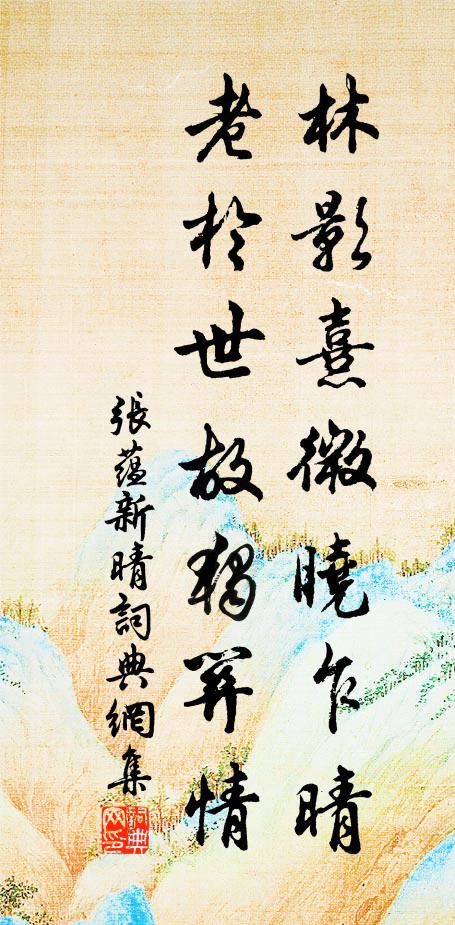 林影熹微曉乍晴
老於世故獨關情
張蘊新晴詞典網集
詞典网印